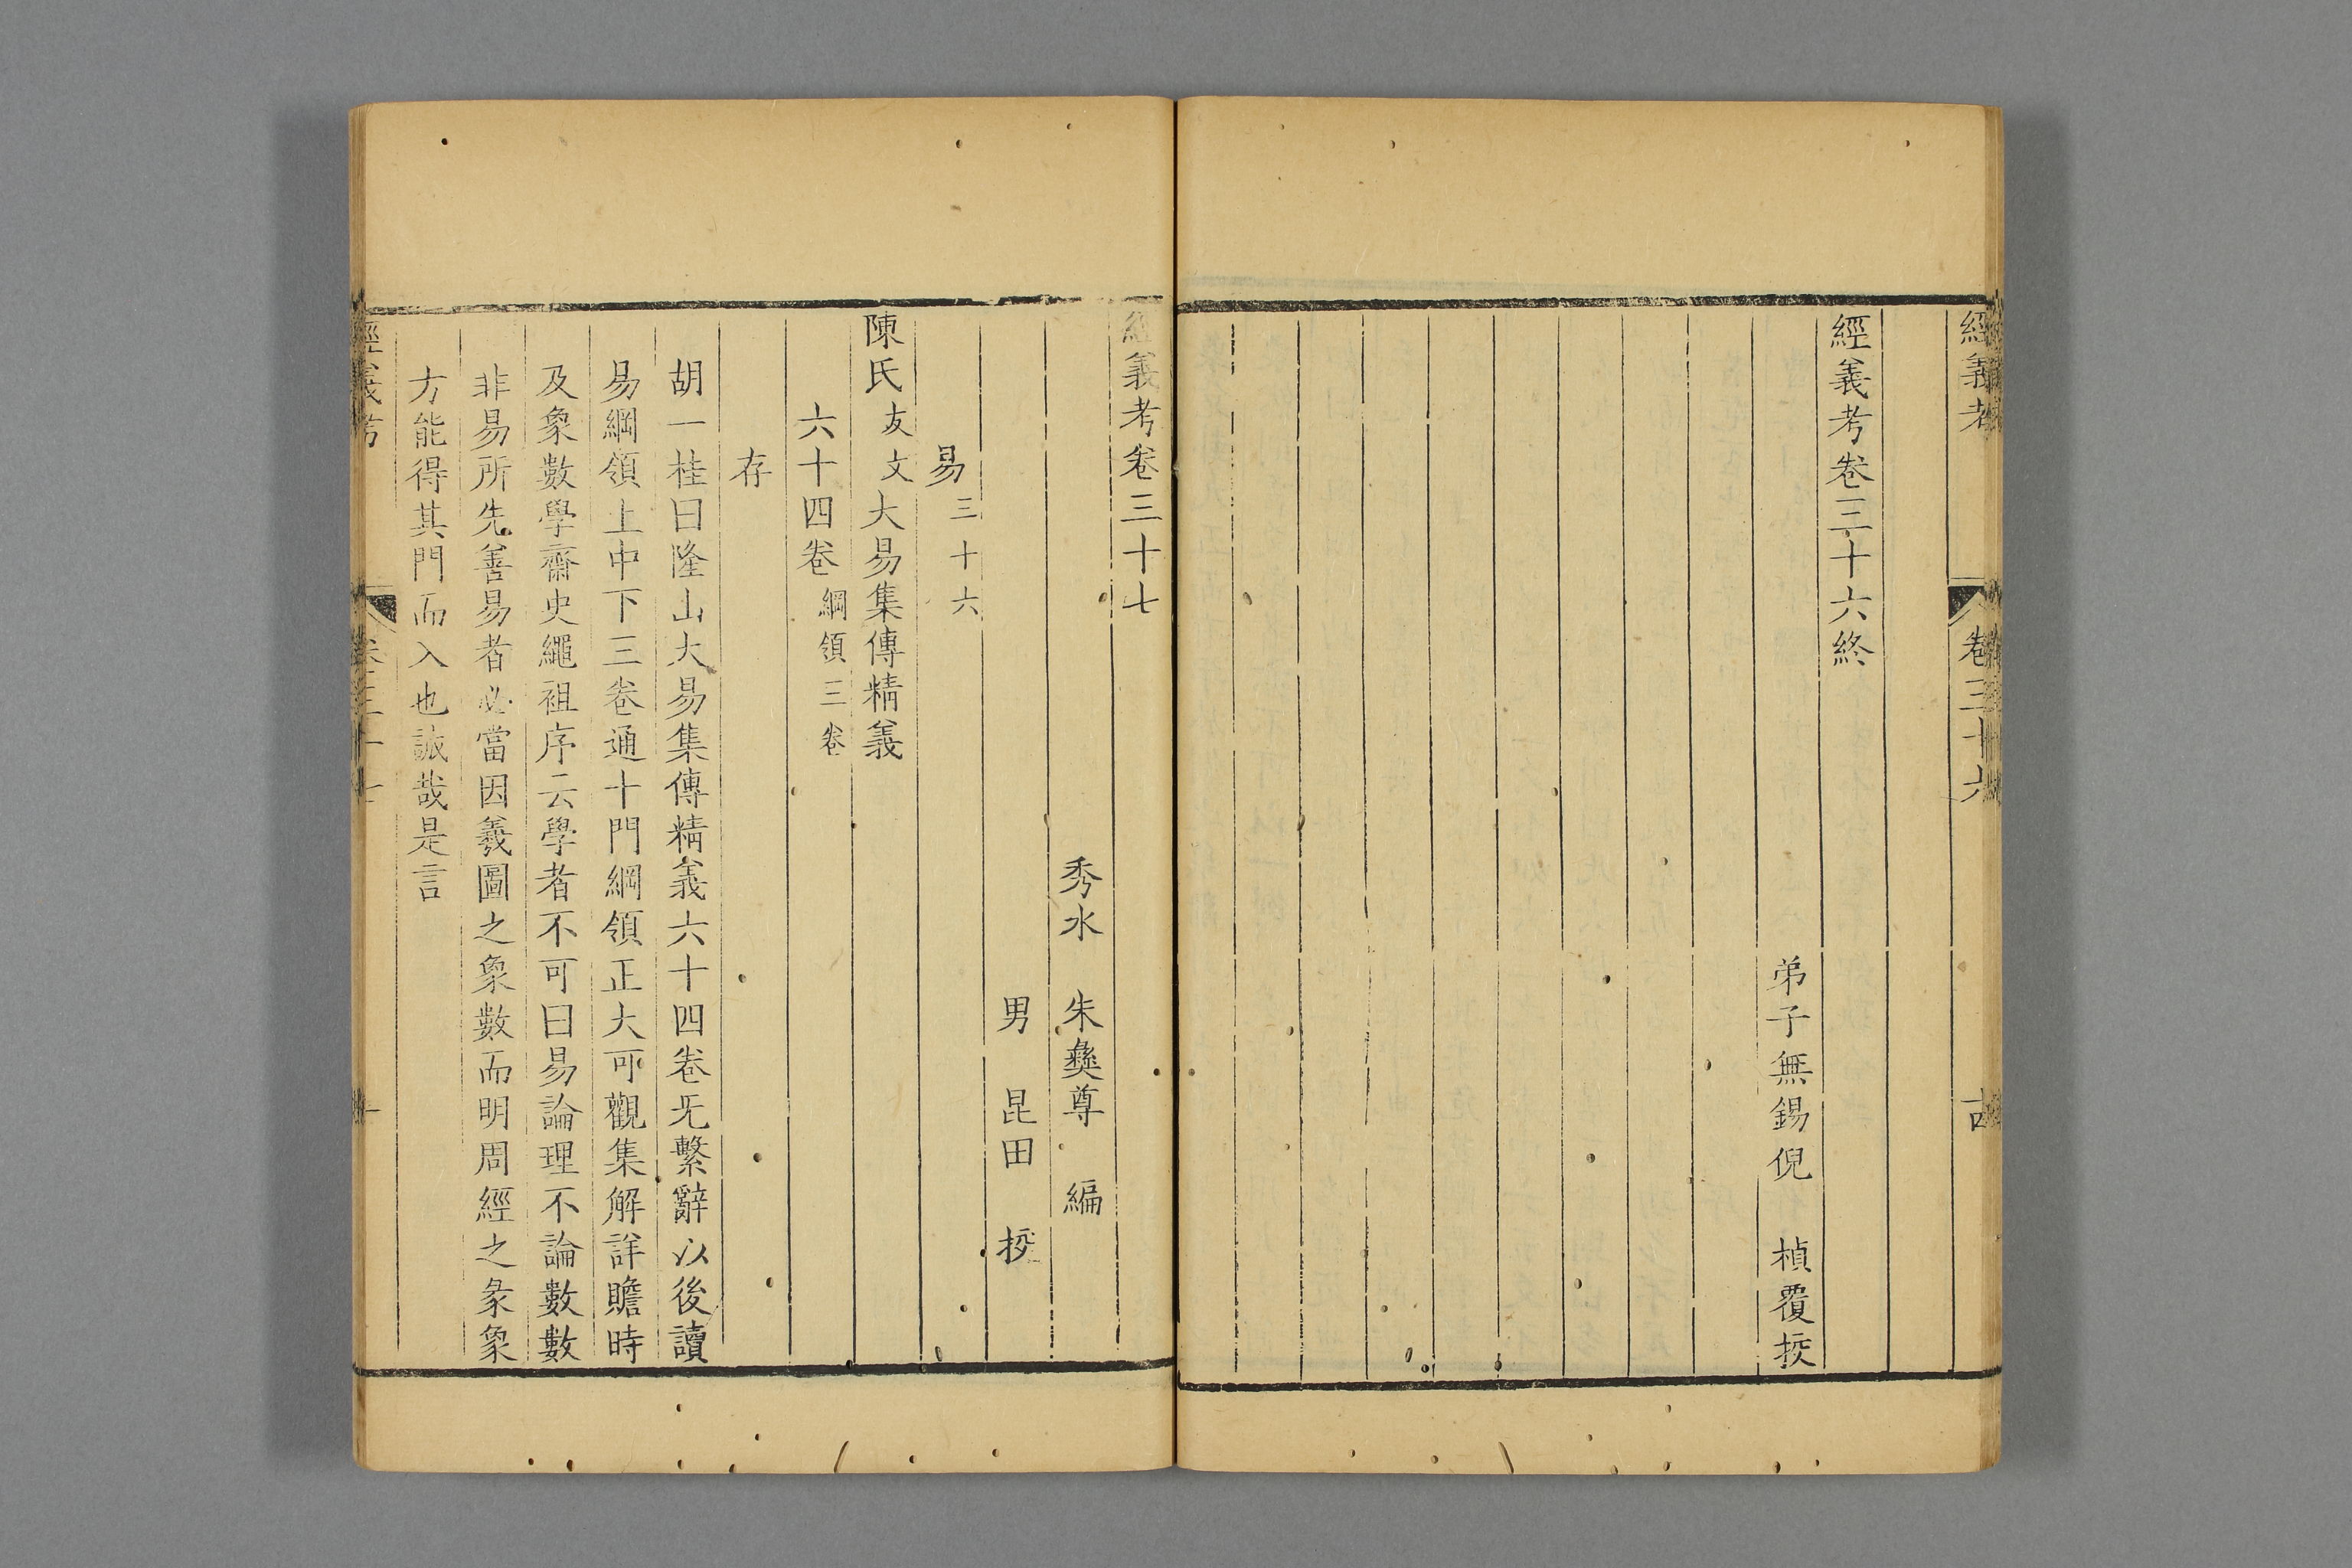 經義考
卷三十六
古
經義考卷三十六終
弟子無錫倪 楨覆挍
經義考卷三十七
秀水 朱彝尊 編
男 昆田 挍
易三十六
陳氏友文大易集傳精義
六十四卷綱領三卷
存
胡一桂曰隆山大易集傳精義六十四卷旡繫辭以後讀
易綱領上中下三卷通十門綱領正大可觀集解詳贍時
及象數學齋史繩祖序云學者不可曰易論理不論數數
非易所先善易者必當因羲圖之象數而明周經之彖象
方能得其門而入也誠哉是言
經義考
卷三十七
一